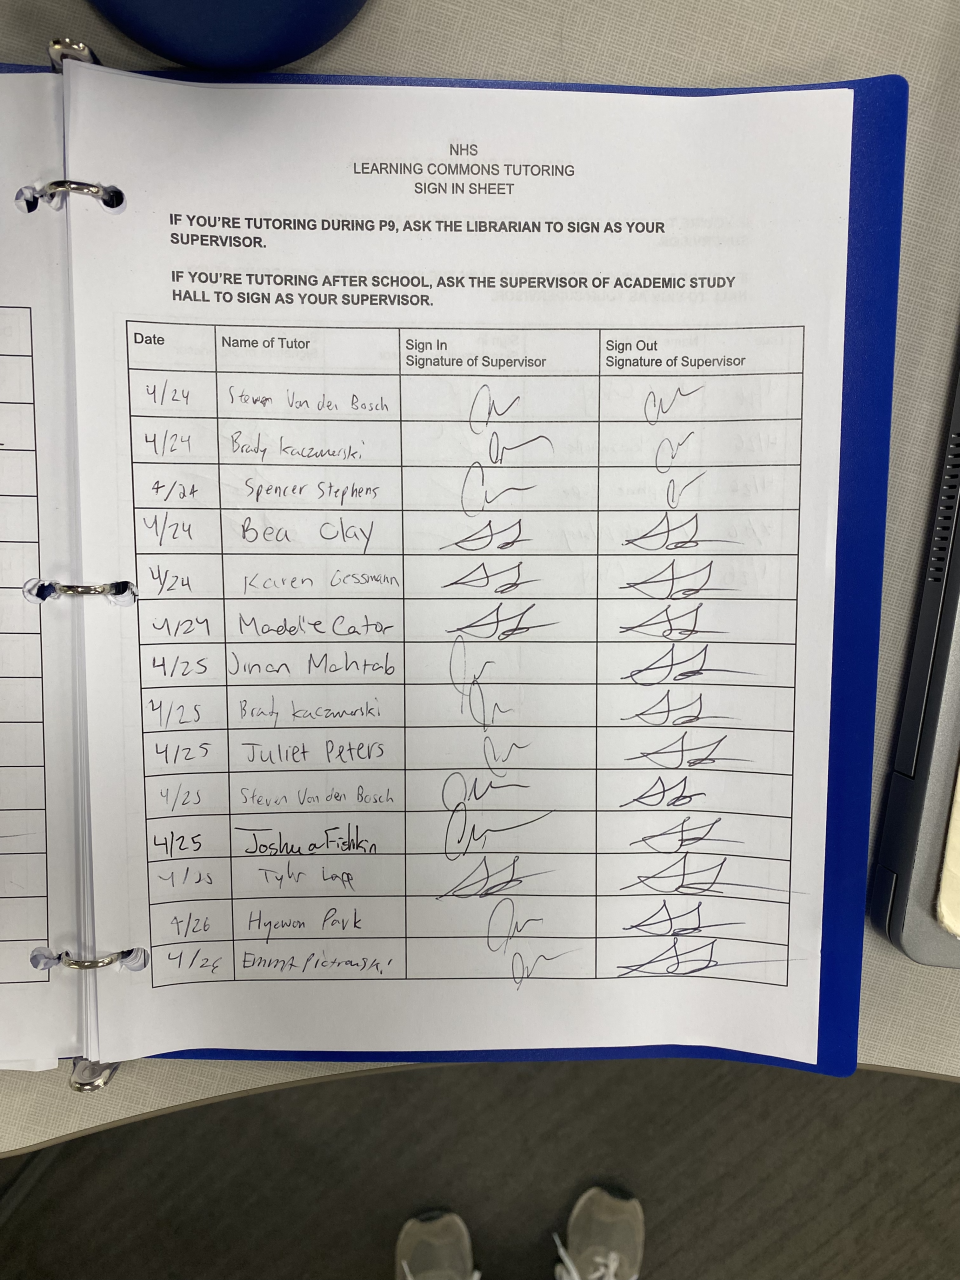 NHS
LEARNING COMMONS TUTORING
SIGN IN SHEET
IF YOU'RE TUTORING DURING P9, ASK THE LIBRARIAN TO SIGN AS YOUR
SUPERVISOR.
IF YOU'RE TUTORING AFTER SCHOOL, ASK THE SUPERVISOR OF ACADEMIC STUDY
HALL TO SIGN AS YOUR SUPERVISOR.
Date Name of Tutor Sign In Sign Out
Signature of Supervisor Signature of Supervisor
4/24 Steven Van den Bosch
4/24 Brady Kaczmerski
4/24 Spencer Stephens
4/24 Bea Clay
4/24 Karen Gessmann
4/24 Maddie Cator
4/25 Jinan Mahtab
4/25 Brady Kaczmerski
4/25 Juliet Peters
4/25 Steven Van den Bosch
4/25 Joshua Fishkin
4/25 Tyler Lapp
4/26 Hyewon Park
4/26 Emma Piotrowski